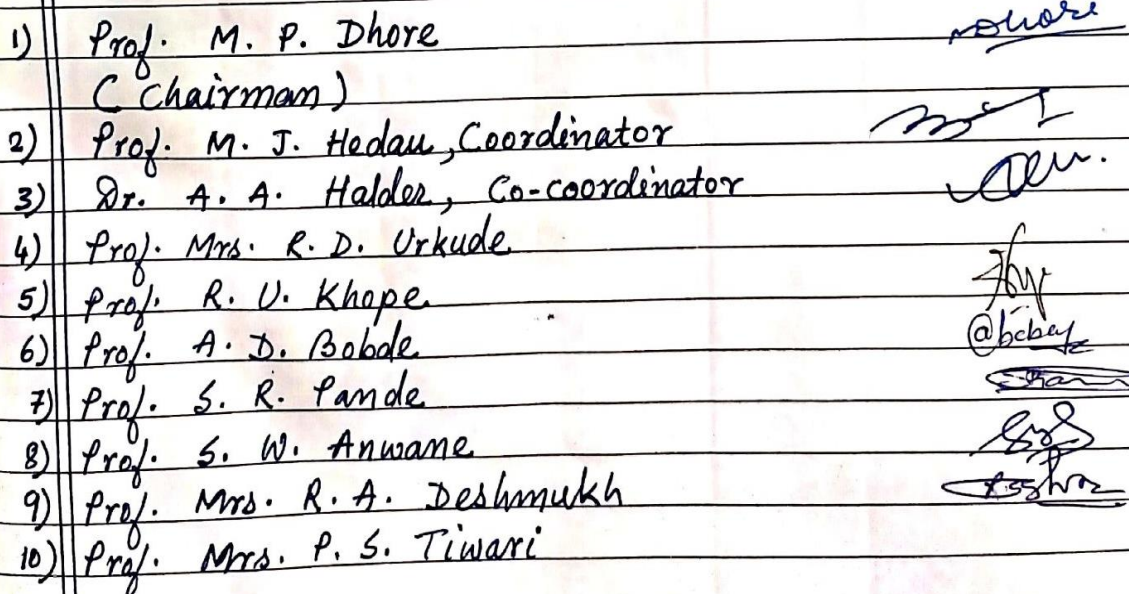 1) Prof. M. P. Dhore Dhore
(Chairman)
2) Prof. M. J. Hedau, Coordinator
3) Dr. A. A. Halder, Co-coordinator
4) Prof. Mrs. R. D. Urkude
5) Prof. R. U. Khope
6) Prof. A. D. Bobde
7) Prof. S. R. Pande
8) Prof. S. W. Anwane
9) Prof. Mrs. R. A. Deshmukh
10) Prof. Mrs. P. S. Tiwari